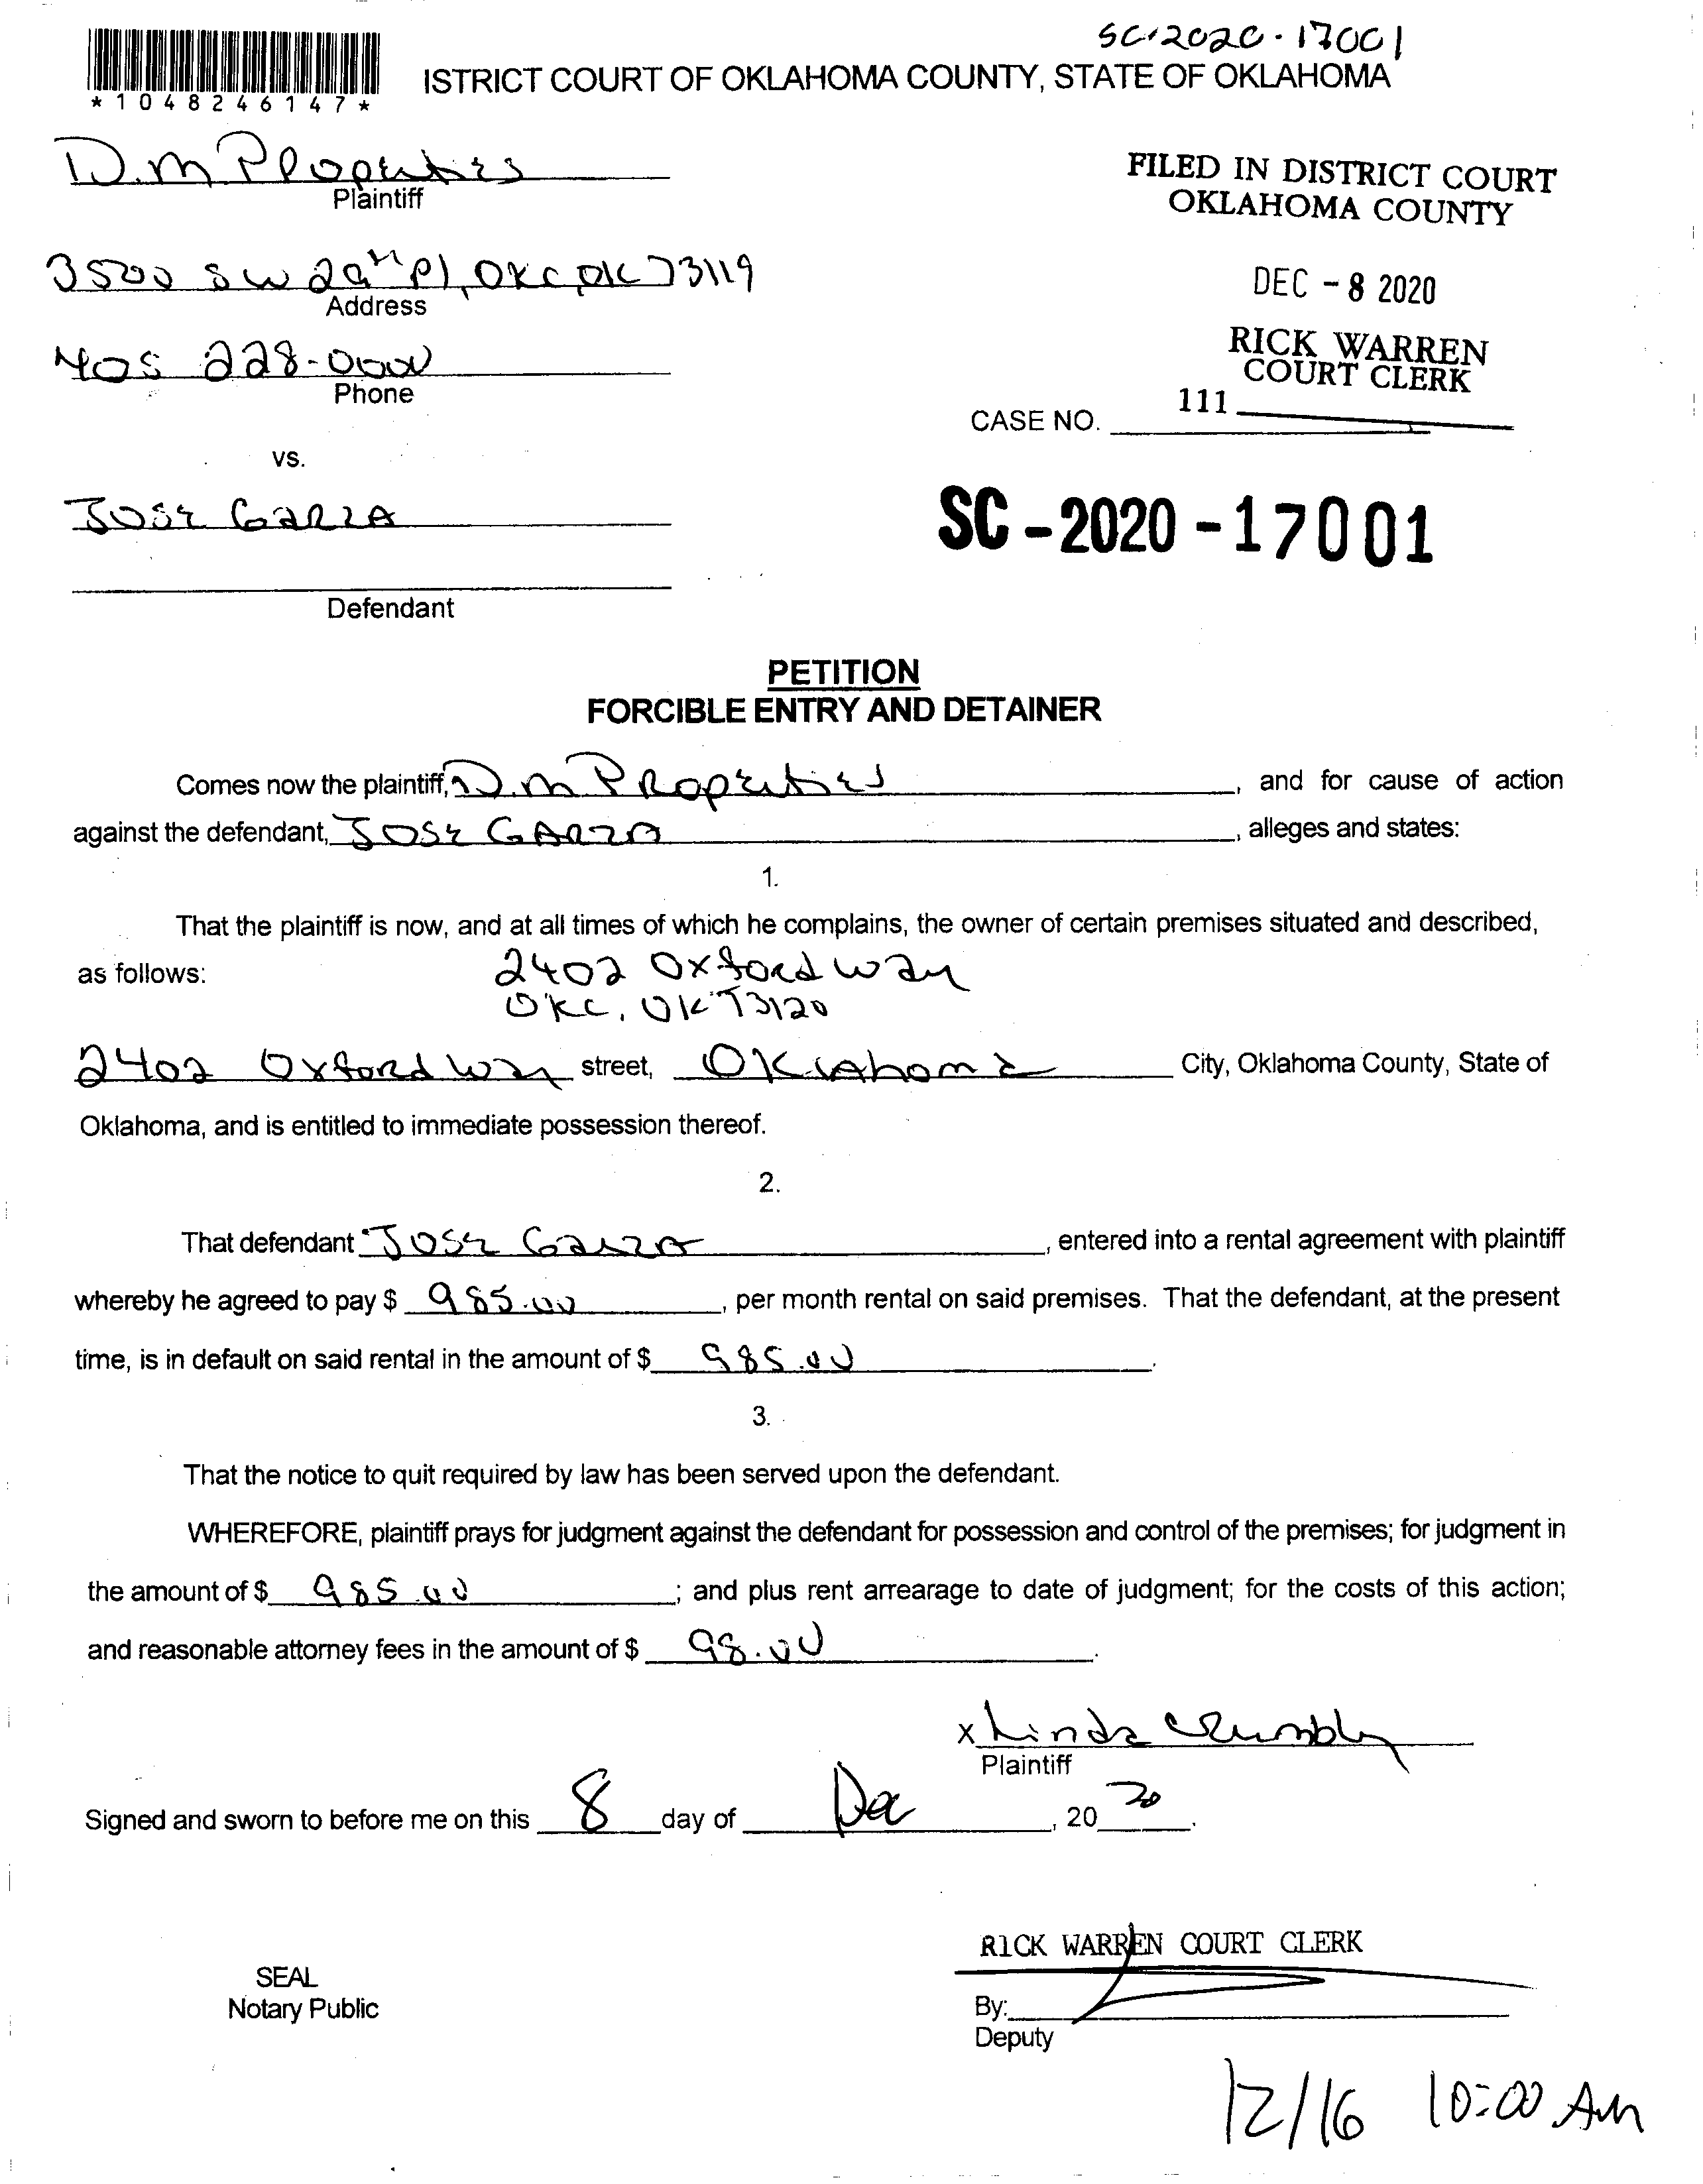 SC-2020-17001
*1048246147*
ISTRICT COURT OF OKLAHOMA COUNTY, STATE OF OKLAHOMA
D.M Properties
Plaintiff
FILED IN DISTRICT COURT
OKLAHOMA COUNTY
3500 SW 29th Pl, OKC, OK 73119
Address
DEC - 8 2020
RICK WARREN
COURT CLERK
405 228-0000
Phone
111
CASE NO.
vs.
Jose Garza
SC - 2020 - 17001
Defendant
PETITION
FORCIBLE ENTRY AND DETAINER
Comes now the plaintiff, D.M Properties, and for cause of action
against the defendant, Jose Garza, alleges and states:
1.
That the plaintiff is now, and at all times of which he complains, the owner of certain premises situated and described,
as follows: 2402 Oxford Way
OKC, OK 73120
2402 Oxford Way street, Oklahoma City, Oklahoma County, State of
Oklahoma, and is entitled to immediate possession thereof.
2.
That defendant Jose Garza, entered into a rental agreement with plaintiff
whereby he agreed to pay $ 985.00, per month rental on said premises. That the defendant, at the present
time, is in default on said rental in the amount of $ 985.00.
3.
That the notice to quit required by law has been served upon the defendant.
WHEREFORE, plaintiff prays for judgment against the defendant for possession and control of the premises; for judgment in
the amount of $ 985.00; and plus rent arrearage to date of judgment; for the costs of this action;
and reasonable attorney fees in the amount of $ 98.00.
x Linda Crumbly
Plaintiff
Signed and sworn to before me on this 8 day of Dec, 20 20.
RICK WARREN COURT CLERK
SEAL
Notary Public
By:
Deputy
12/16 10:00 AM